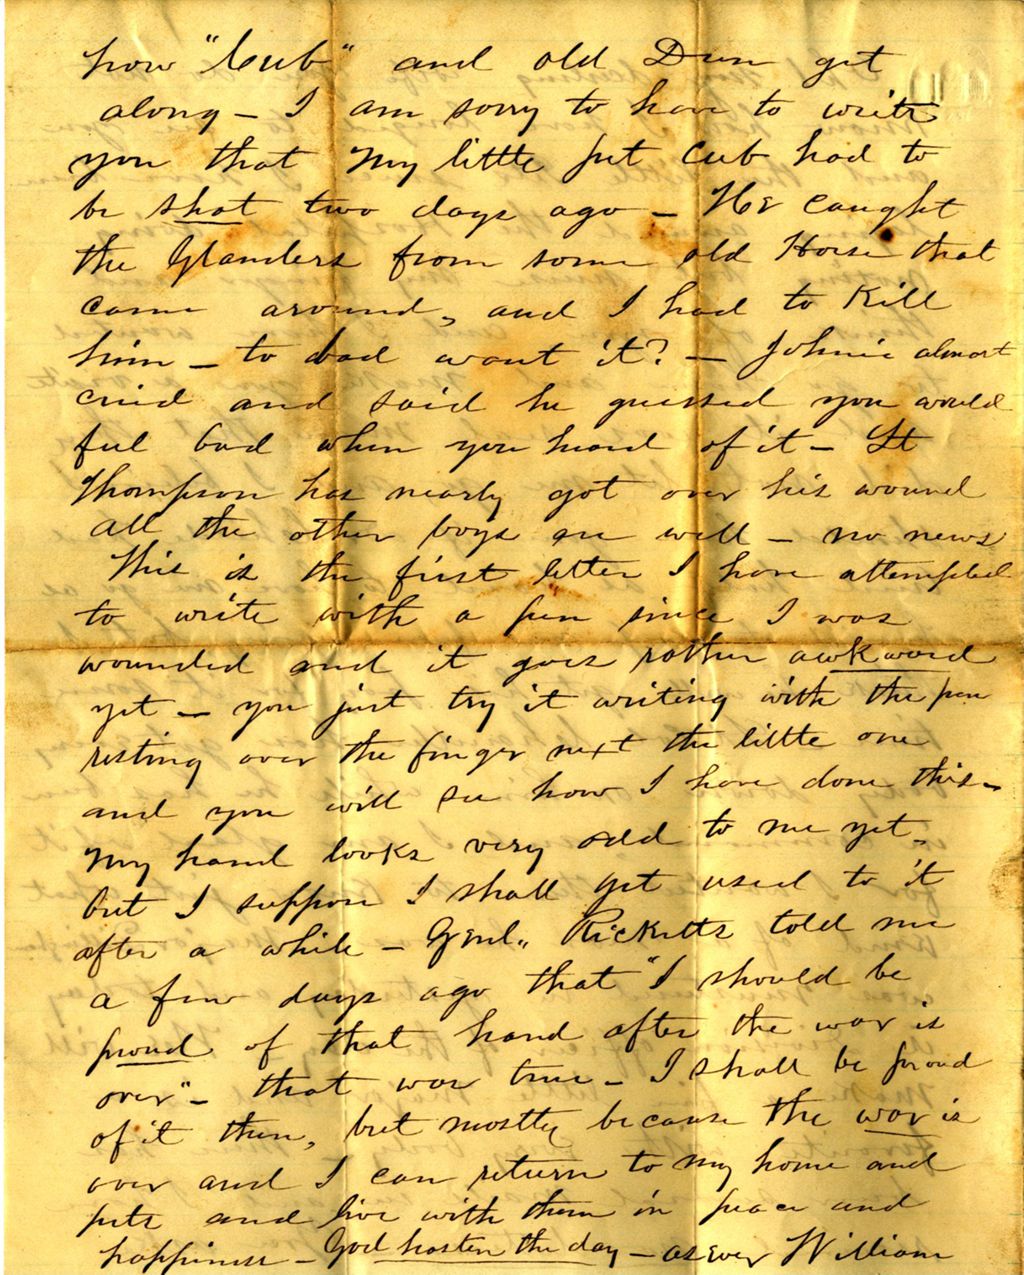 how "Cub" and old Dun get
along – I am sorry to have to write
you that my little pet Cub had to
be shot two days ago – He caught
the Glanders from some old Horse that
came around, and I had to Kill
him – to bad wont it? – Johnie almost
cried and said he guessed you would
feel bad when you heard of it – Lt
Thompson has nearly got over his wound
all the other boys are well – no news
This is the first letter I have attempted
to write with a pen since I was
wounded and it goes rather awkward
yet – you just try it writing with the pen
resting over the finger next the little one
and you will see how I have done this –
My hand looks very odd to me yet,
but I suppose I shall get used to it
after a while – Genl,, Ricketts told me
a few days ago that "I should be
proud of that hand after the war is
over" – that was true – I shall be proud
of it then, but mostly because the war is
over and I can return to my home and
pets and live with them in peace and
happiness – God hasten the day – as ever William